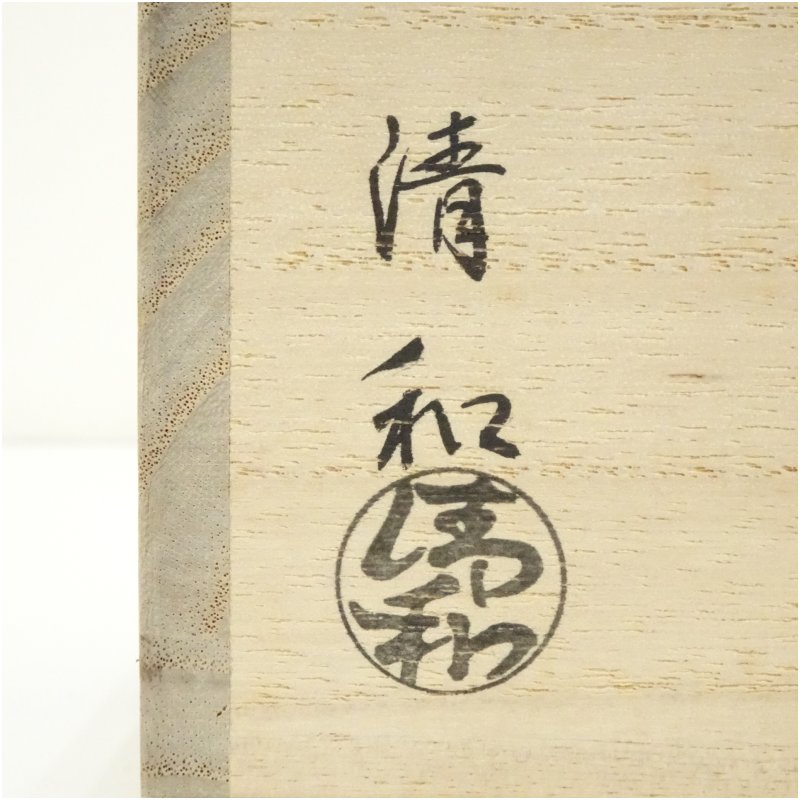 清和
清和